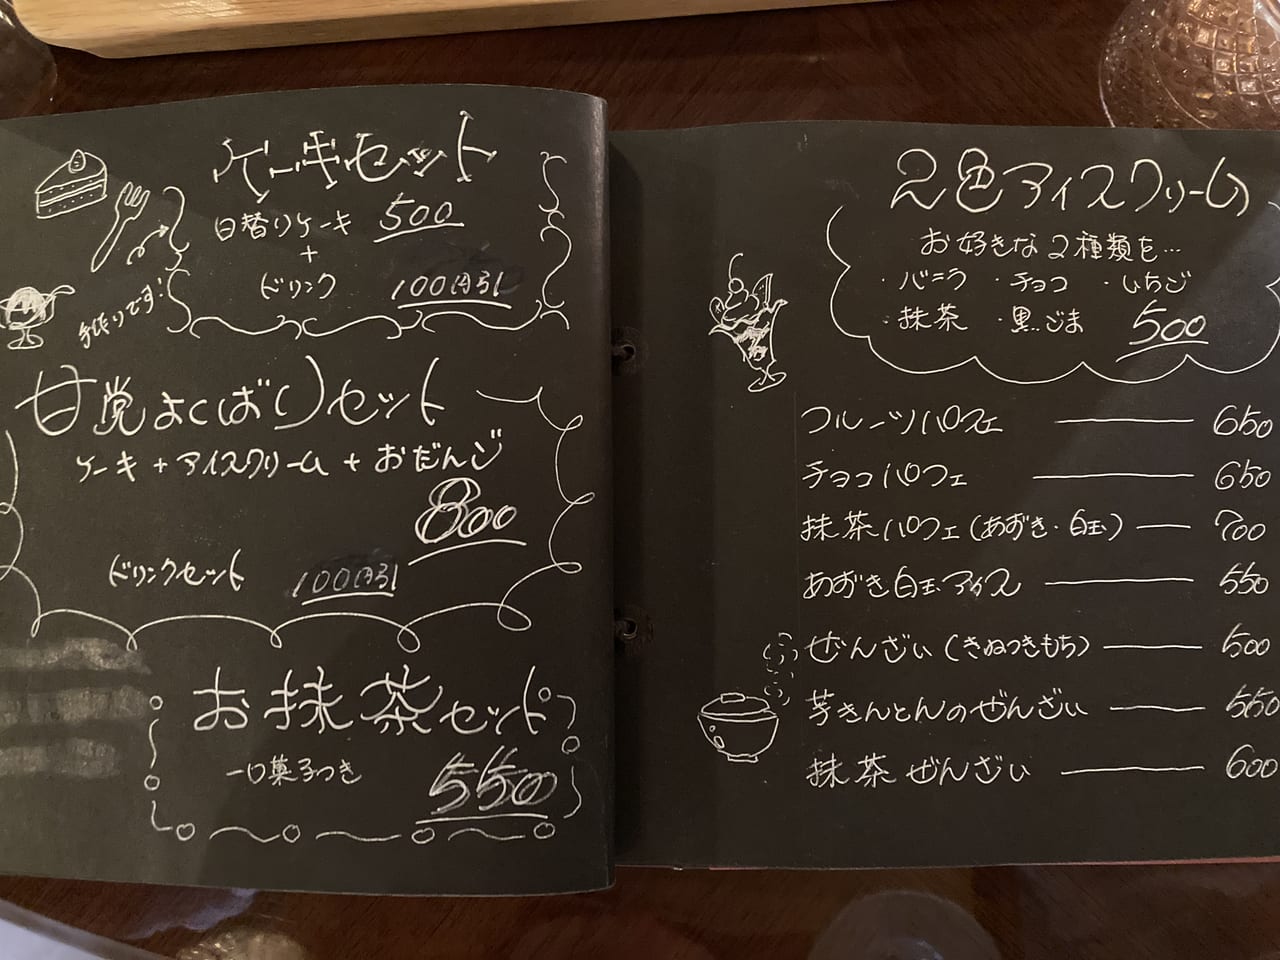 ケーキセット
日替りケーキ 500
+
ドリンク 100円引
手作りです!
甘党よくばりセット
ケーキ+アイスクリーム+おだんご
800
ドリンクセット 100円引
お抹茶セット
一口菓子つき 550
2色アイスクリーム
お好きな2種類を…
・バニラ ・チョコ ・いちご
・抹茶 ・黒ごま 500
フルーツパフェ 650
チョコパフェ 650
抹茶パフェ(あずき・白玉) 700
あずき白玉アイス 550
ぜんざい(きねつきもち) 500
芋きんとんのぜんざい 550
抹茶ぜんざい 600